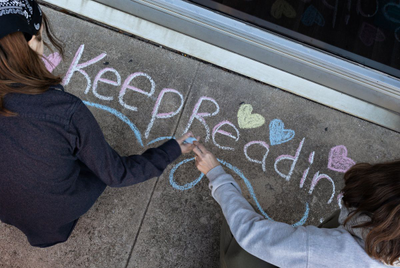 Keep Reading